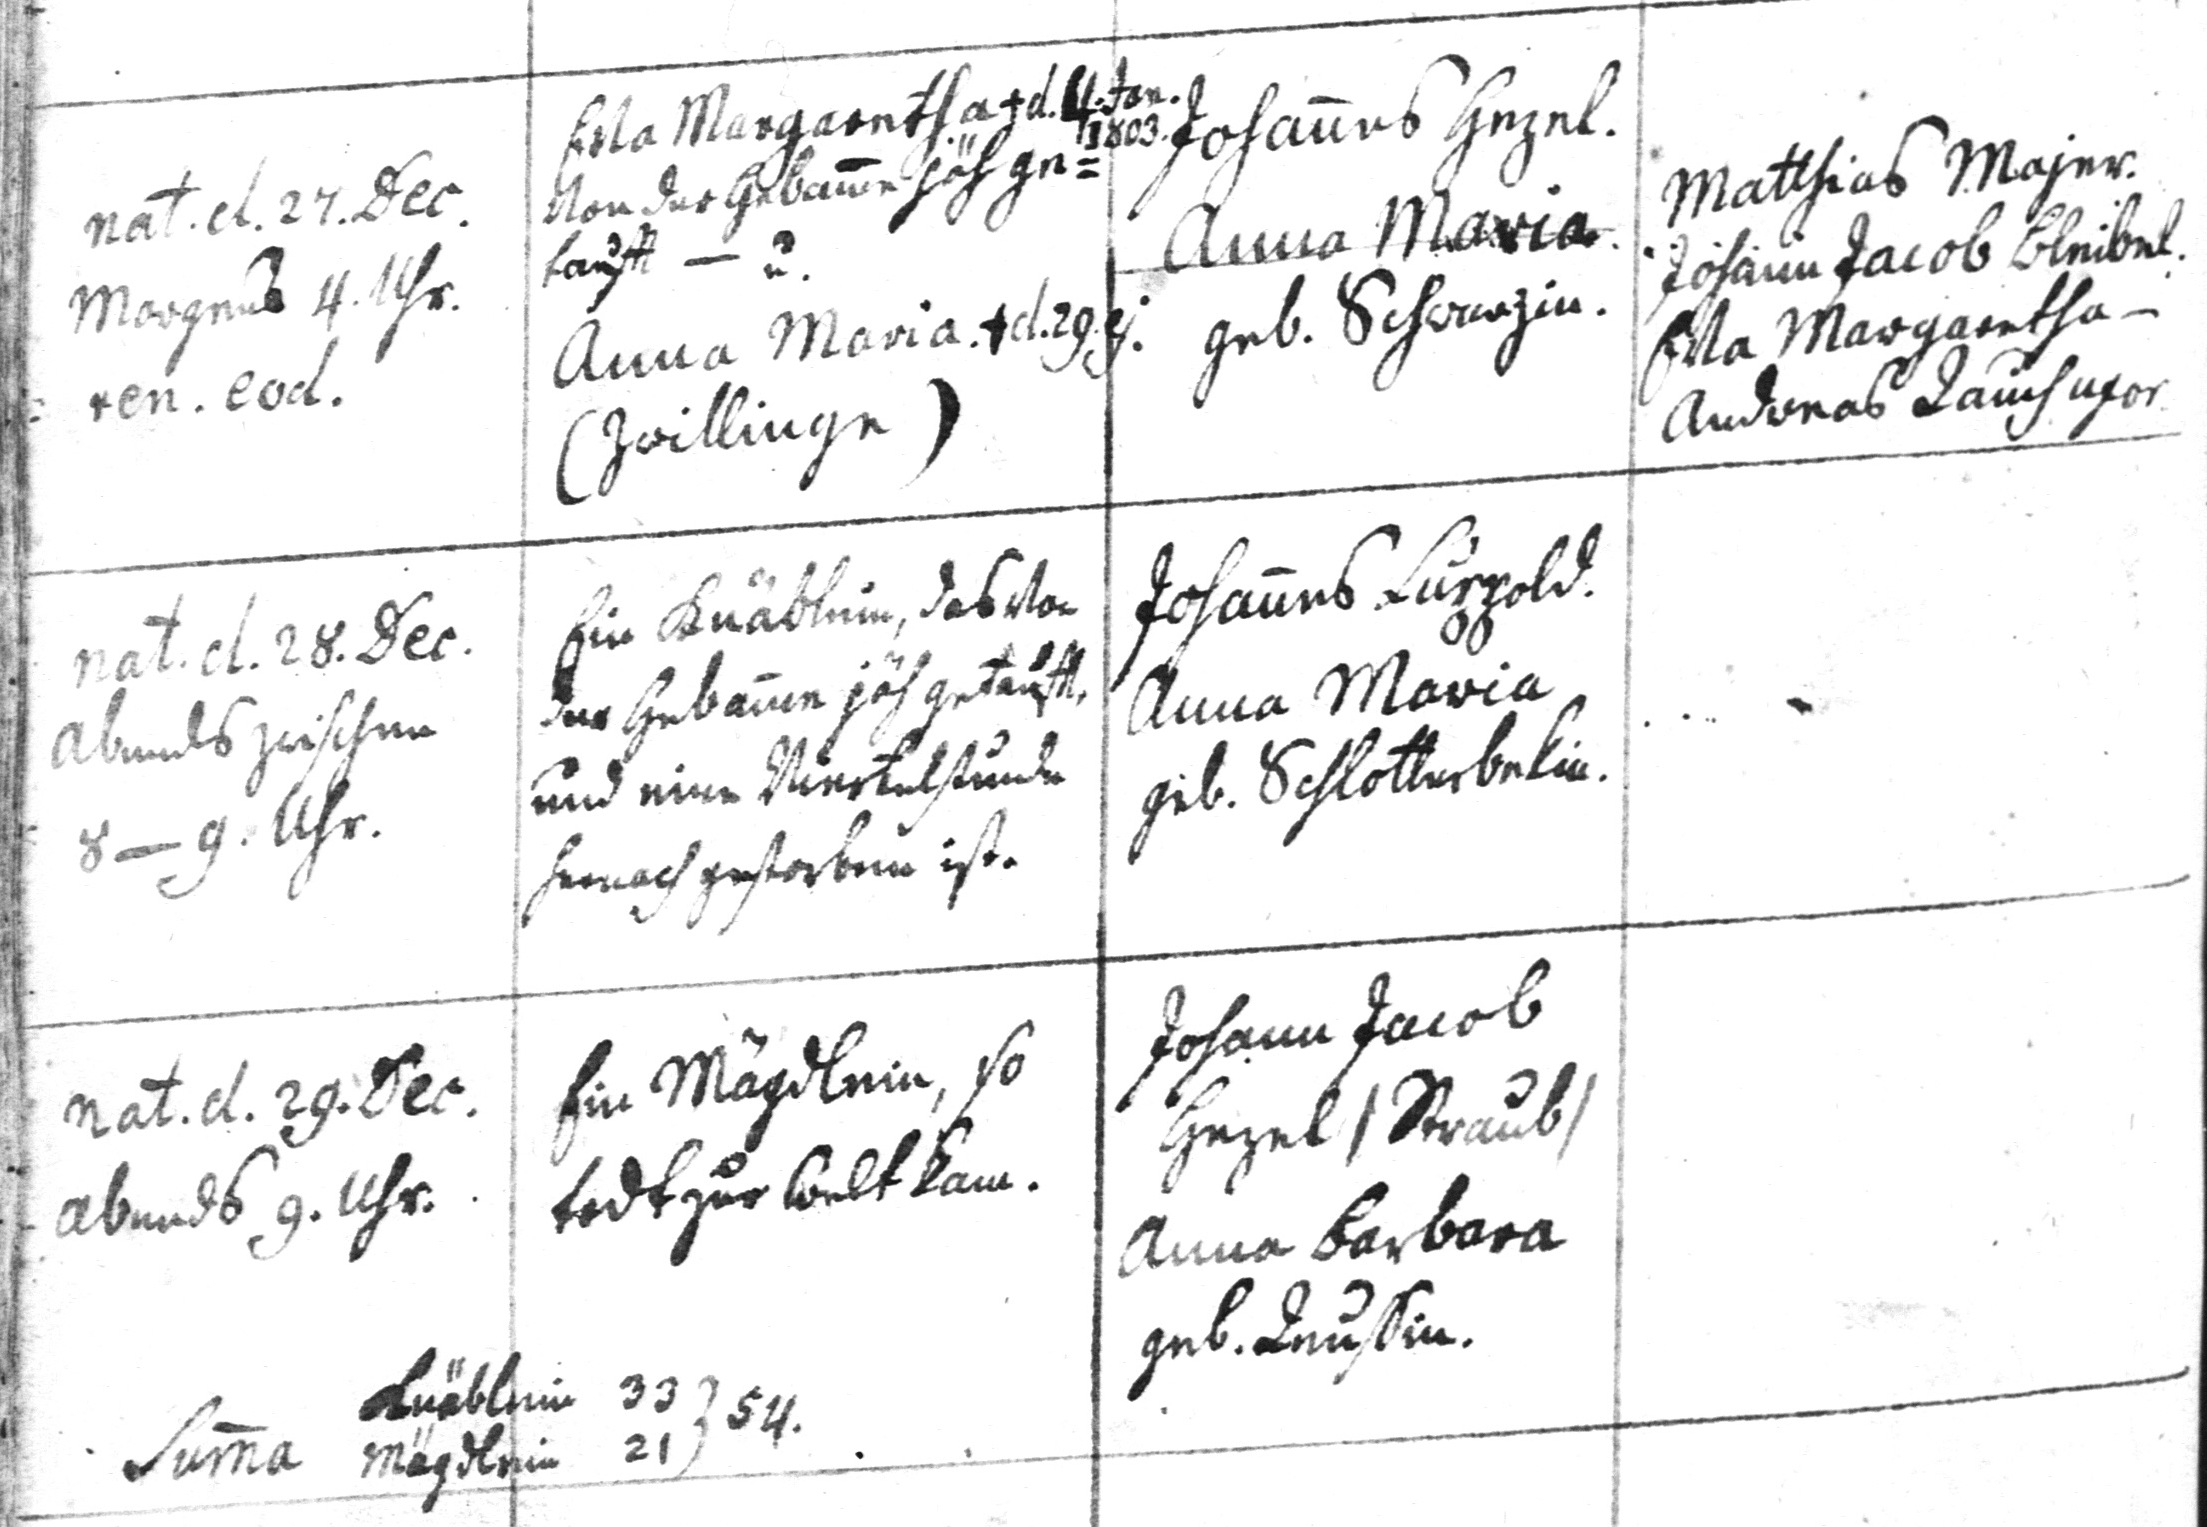 nat. d. 27. Dec.
Morgens 4. Uhr.
ren. eod.
Eva Margaretha † d. 4. Jan. 1803.
von der Hebam̅e jäh ge=
tauft — u.
Anna Maria. † d. 29. ej.
(Zwillinge)
Johan̅es Hezel.
Anna Maria.
geb. Schwarzin.
Matthias Majer.
Johann Jacob Bleibel.
Eva Margaretha —
Andreas Rauch uxor
nat. d. 28. Dec.
Abends zwischen
8 — 9. Uhr.
Ein Knäblein, das von
der Hebam̅e jäh getauft,
und eine Viertelstunde
hernach gestorben ist.
Johan̅es Luppold.
Anna Maria
geb. Schlotterbekin.
nat. d. 29. Dec.
Abends 9. Uhr.
Ein Mägdlein, so
todt zur Welt kam.
Johann Jacob
Hezel / Straub /
Anna Barbara
geb.
Sum̅a Knäblein 33 } 54.
Mägdlein 21